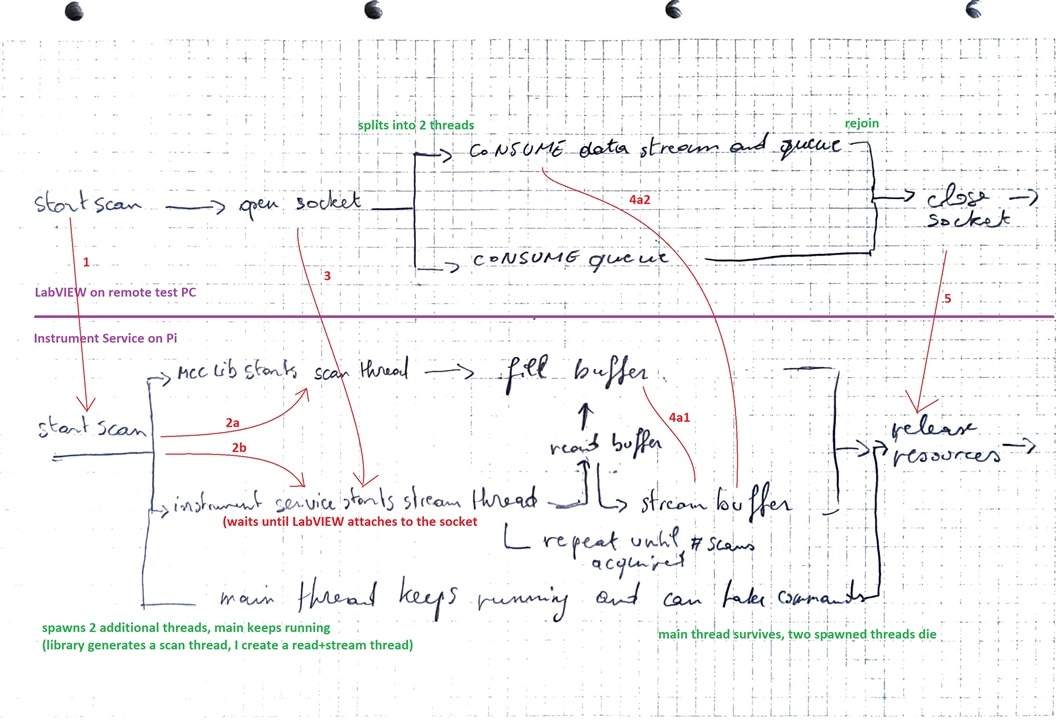 splits into 2 threads
rejoin
CONSUME data stream and queue
start scan
open socket
4a2
close
socket
CONSUME queue
1
3
5
LabVIEW on remote test PC
Instrument Service on Pi
MCC Lib starts scan thread
fill buffer
2a
4a1
start scan
release
resources
2b
read buffer
instrument service starts stream thread
stream buffer
(waits until LabVIEW attaches to the socket
repeat until # scans
acquired
main thread keeps running and can take commands
spawns 2 additional threads, main keeps running
(library generates a scan thread, I create a read+stream thread)
main thread survives, two spawned threads die